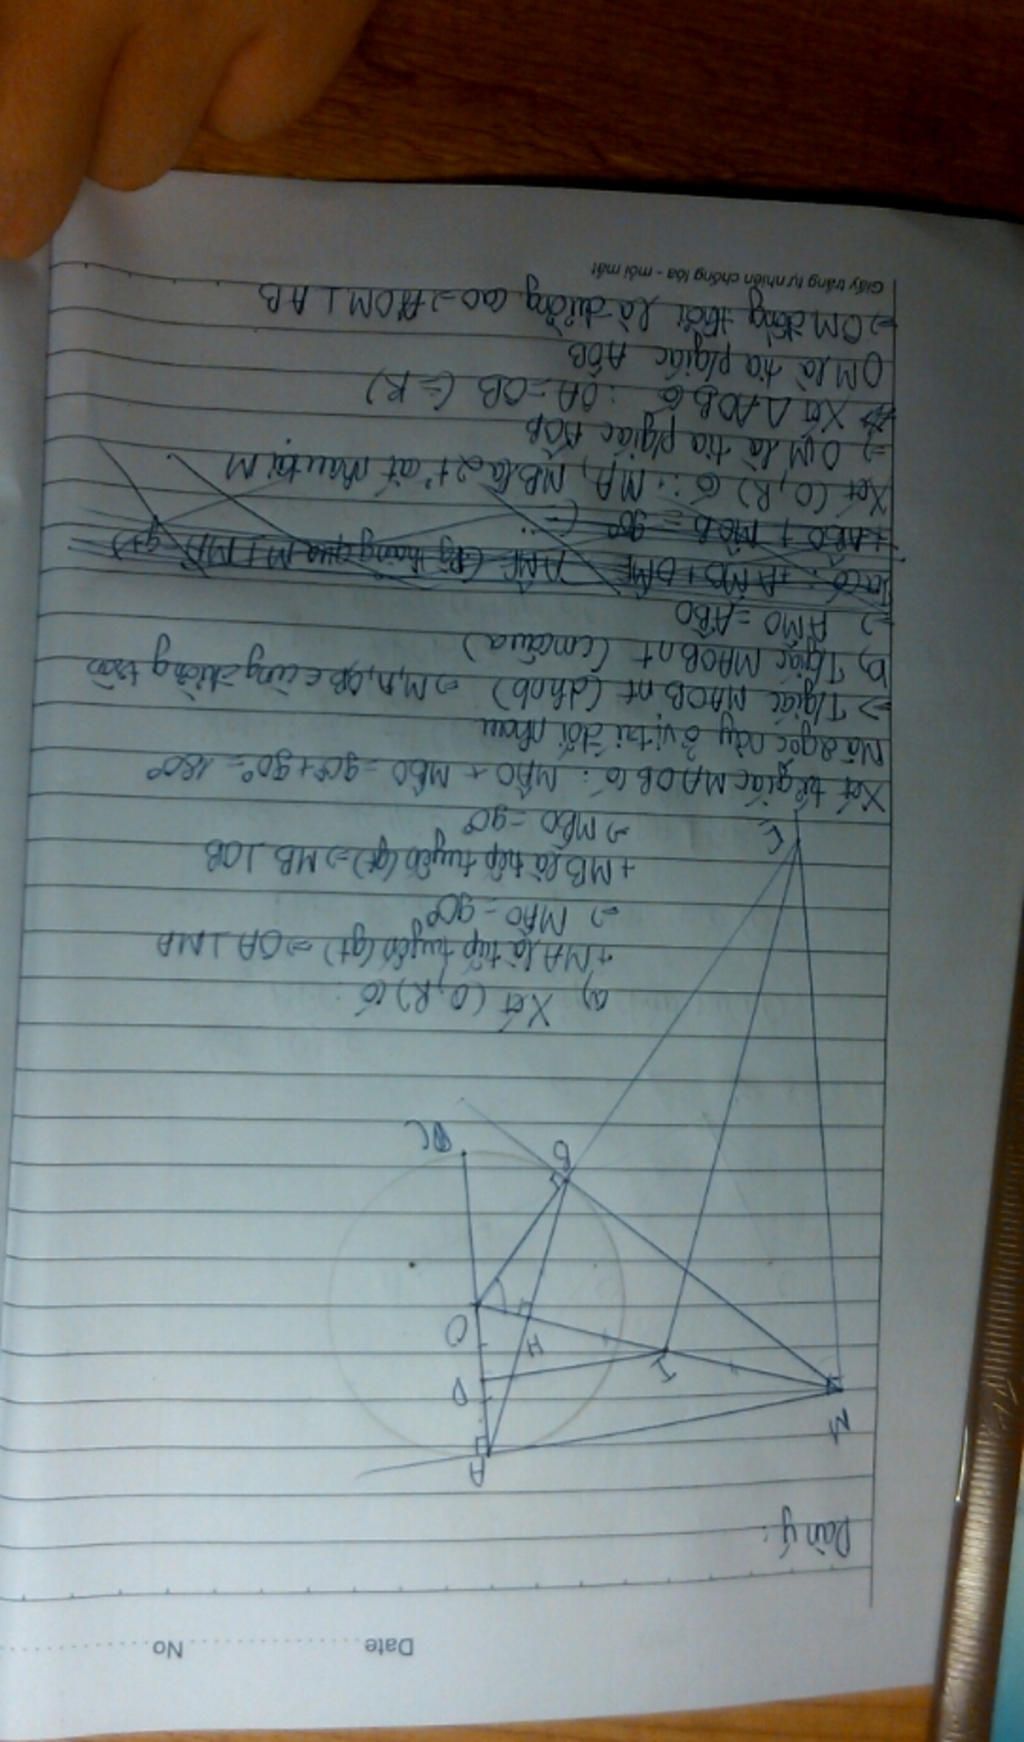 Date ................ No ................
Dàn ý:
A
M
D
I
O
H
B
C
E
a) Xét (O,R) có:
+ MA là tiếp tuyến (gt) ⇒ OA ⊥ MA
⇒ MÂO = 90°
+ MB là tiếp tuyến (gt) ⇒ MB ⊥ OB
⇒ MB̂O = 90°
Xét tứ giác MAOB có: MÂO + MB̂O = 90° + 90° = 180°
Mà 2 góc này ở vị trí đối nhau
⇒ T/giác MAOB nt (dhnb) ⇒ M, A, O, B cùng đường tròn
b, T/giác MAOB nt (cmcâu a)
⇒ AM̂O = AB̂O
Ta có: AMO + OME
+ ABO + MOB = 90°
Xét (O,R) có: MA, MB là 2 t² cắt nhau tại M
⇒ OM là tia p/giác AÔB
Xét Δ AOB có: OA = OB (= R)
OM là tia p/giác AÔB
⇒ OM đồng thời là đường cao ⇒ OM ⊥ AB
Giấy trắng tự nhiên chống lóa - mỏi mắt